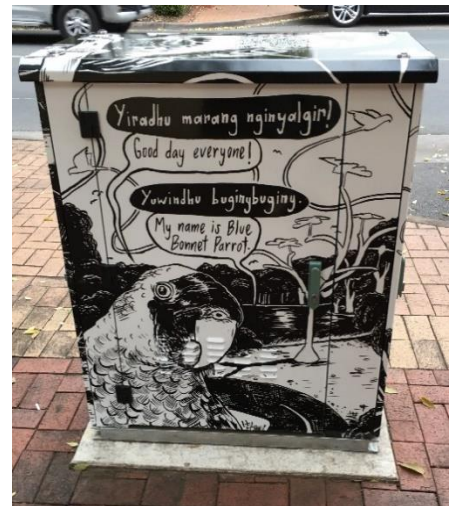 Yiradhu marang nginyalgir!
Good day everyone!
Yuwindhu buginybuginy.
My name is Blue
Bonnet Parrot.